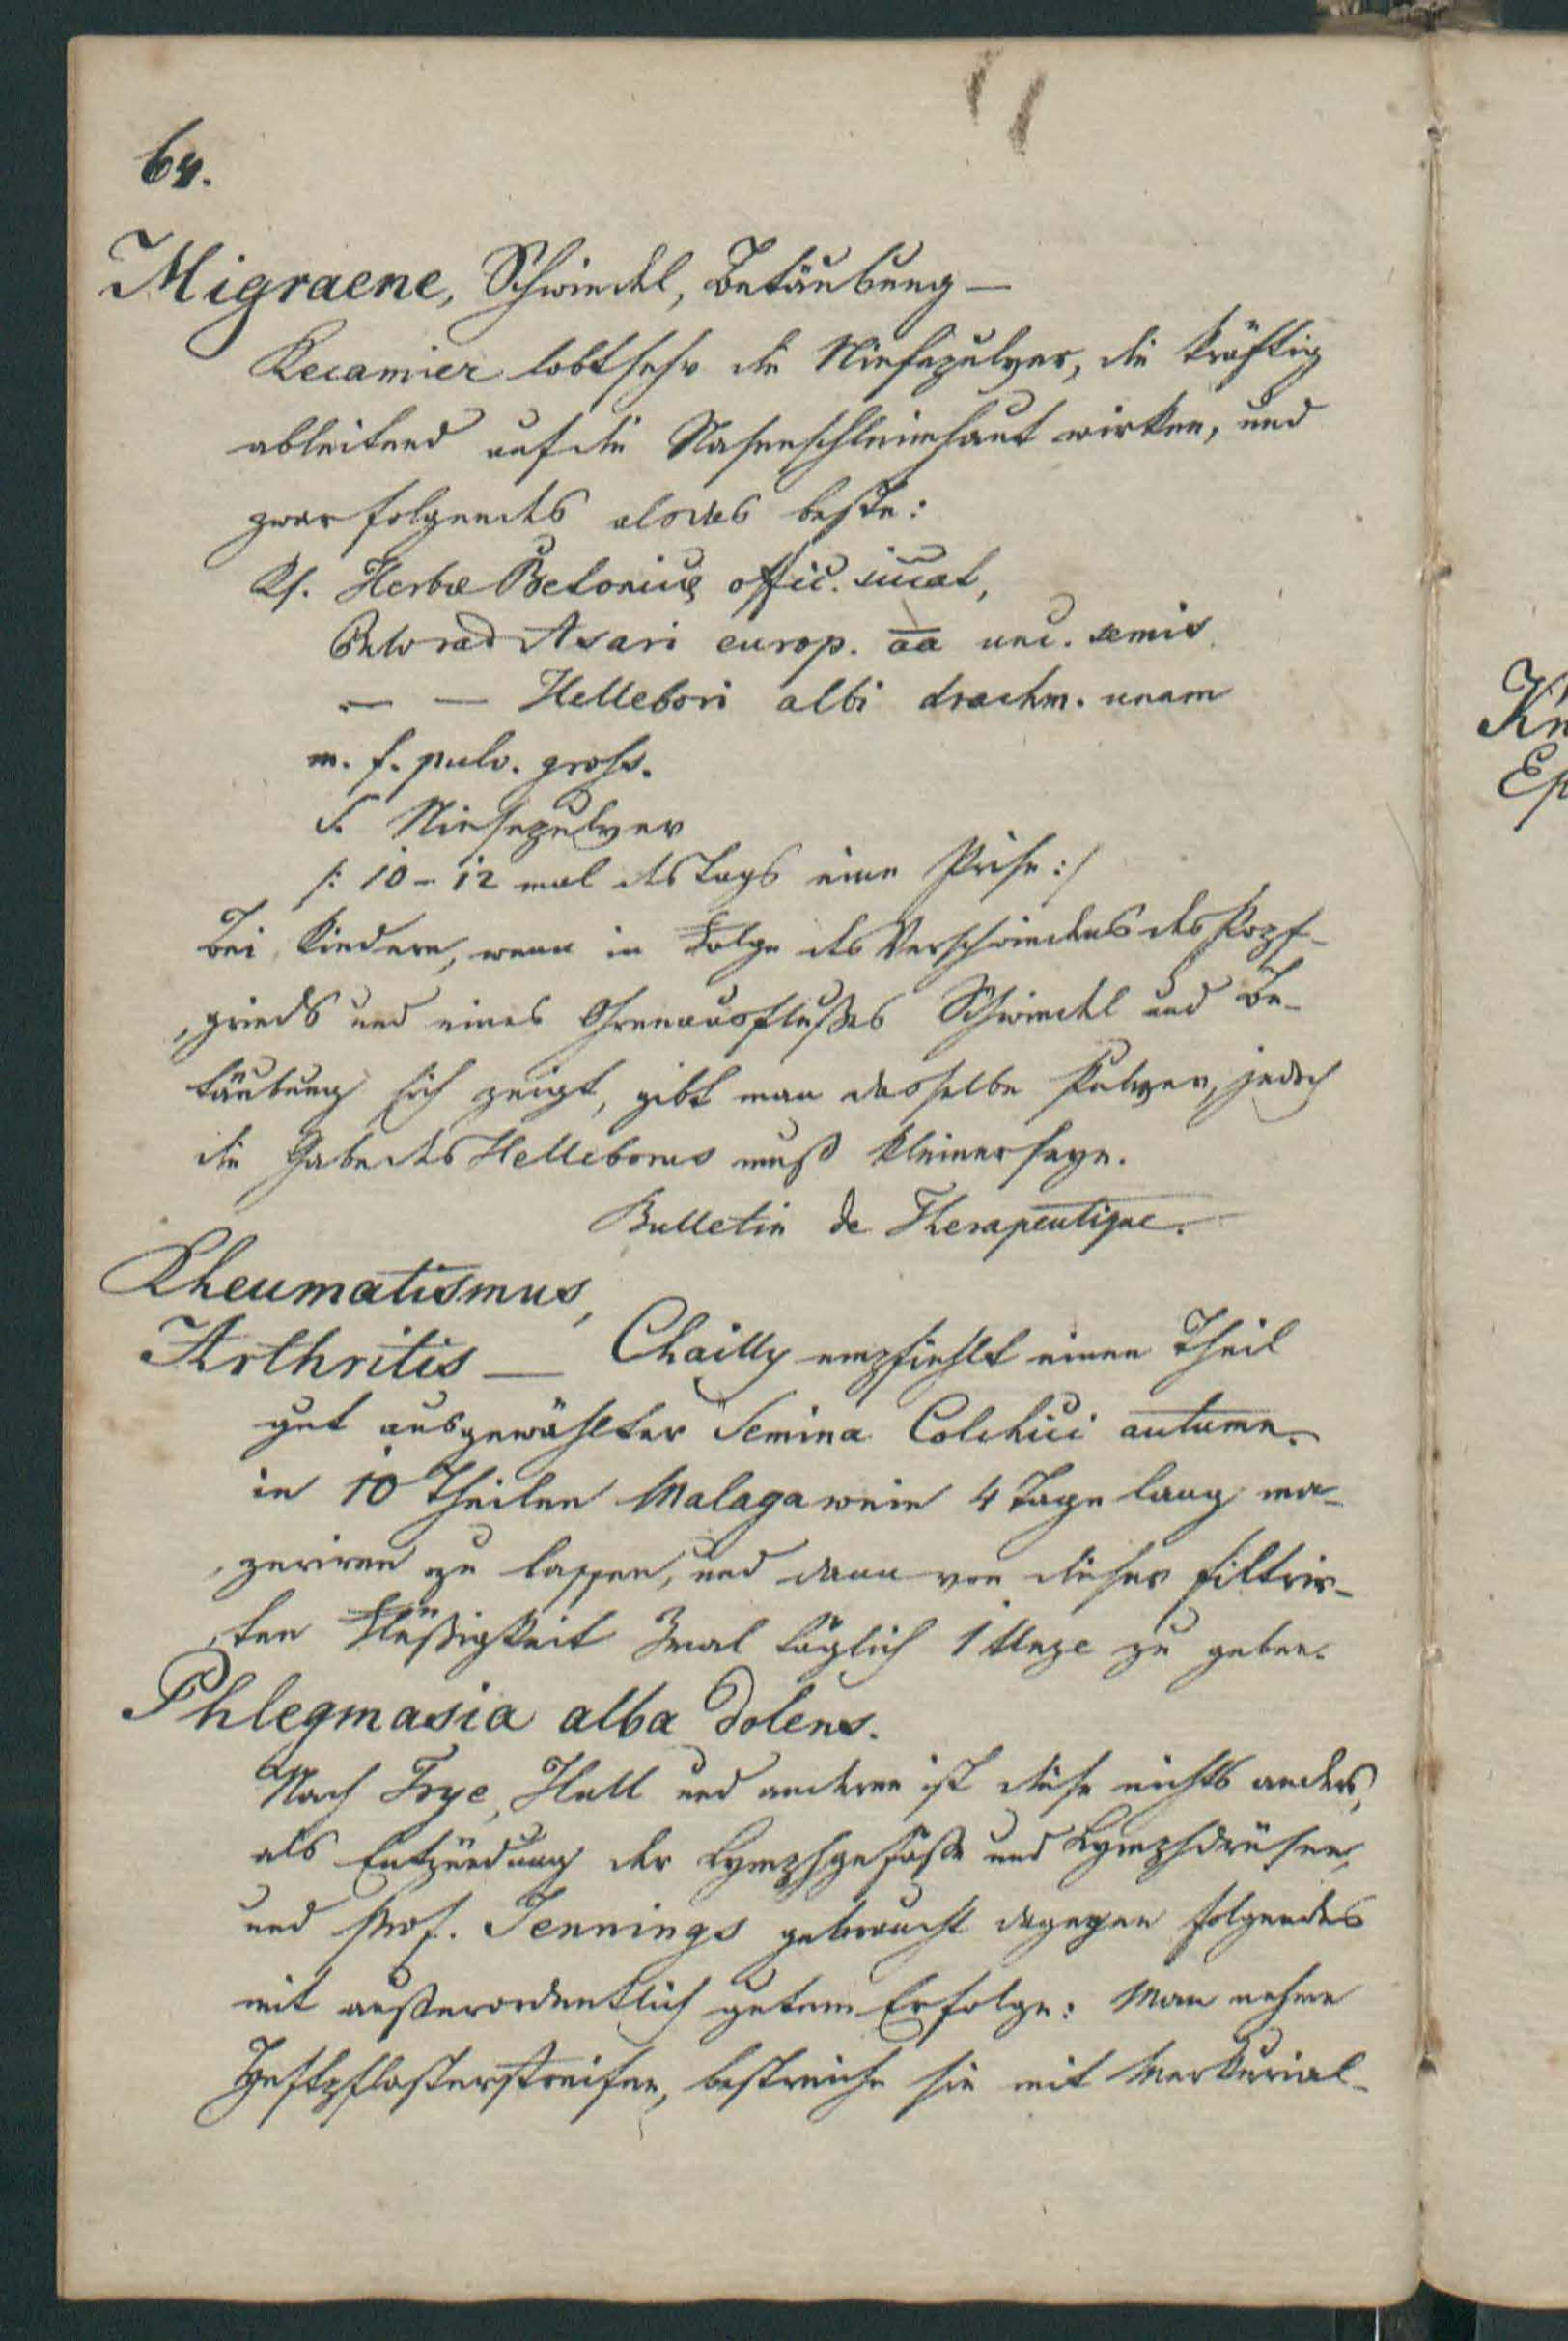 64.
Migraene, Schwindel, Betäubung —
Recamier lobt sehr die Niesepulver, die kräftig
ableitend auf die Nasenschleimhaut wirken, und
zwar folgendes als das beste:
Rp. Herbæ Betonicæ offic. siccat,
Pulv rad Asari europ. aa unc. semis.
— — Hellebori albi drachm. unam
m. f. pulv. gross.
S. Niesepulver
/: 10 - 12 mal des Tags eine Prise :/
Bei Kindern, wenn in Folge des Verschwindens des Kopf-
grinds und eines Ohrenausflußes Schwindel und Be-
täubung sich zeigt, gibt man dasselbe Pulver, jedoch
die Gabe des Helleborus muß kleiner seyn.
Bulletin de Therapeutique.
Rheumatismus,
Arthritis — Chailly empfiehlt einen Theil
gut ausgewählter Semina Colchici autumn.
in 10 Theilen Malagawein 4 Tage lang ma-
zeriren zu lassen, und dann von dieser filtrir-
ten Flüßigkeit 3mal täglich 1 Unze zu geben.
Phlegmasia alba dolens.
Nach Trye, Hull und anderen ist diese nichts anders,
als Entzündung der Lymphgefäße und Lymphdrüsen,
und Prof. Jennings gebraucht dagegen folgendes
mit außerordentlich gutem Erfolge: Man nehme
Heftpflasterstreifen, bestreiche sie mit Merkurial-
Kn
Ep